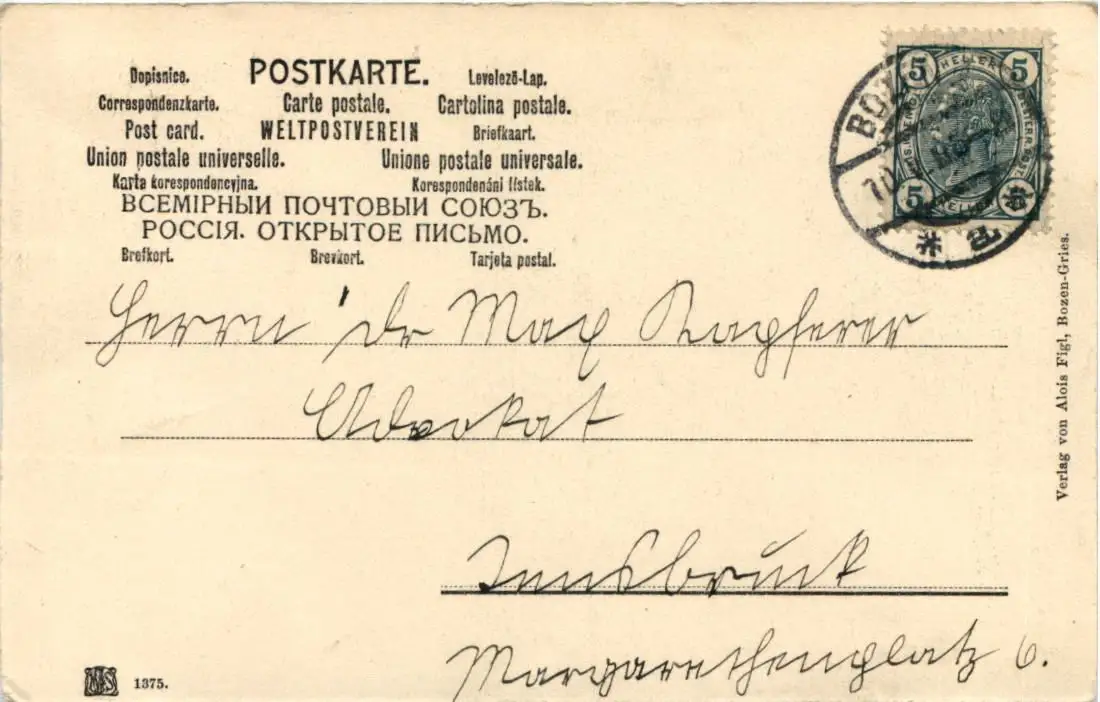 POSTKARTE.
Dopisnice. Levelező-Lap.
Correspondenzkarte. Carte postale. Cartolina postale.
Post card. WELTPOSTVEREIN Briefkaart.
Union postale universelle. Unione postale universale.
Karta korespondencyjna. Korespondenční lístek.
ВСЕМІРНЫИ ПОЧТОВЫИ СОЮЗЪ.
РОССІЯ. ОТКРЫТОЕ ПИСЬМО.
Brefkort. Brevkort. Tarjeta postal.
5 HELLER 5
5 HELLER
Herrn Dr Max Kapferer
Advokat
Innsbruck
Margarethenplatz 6.
Verlag von Alois Figl, Bozen-Gries.
1375.